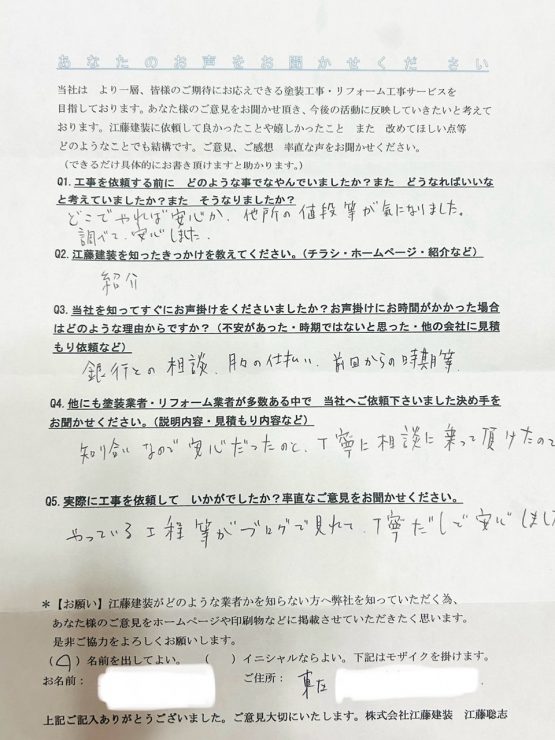 あなたのお声をお聞かせください
当社は　より一層、皆様のご期待にお応えできる塗装工事・リフォーム工事サービスを
目指しております。あなた様のご意見をお聞かせ頂き、今後の活動に反映していきたいと考えて
おります。江藤建装に依頼して良かったことや嬉しかったこと　また　改めてほしい点等
どのようなことでも結構です。ご意見、ご感想　率直な声をお聞かせください。
（できるだけ具体的にお書き頂けますと助かります。）
Q1.工事を依頼する前に　どのような事でなやんでいましたか？また　どうなればいいな
と考えていましたか？また　そうなりましたか？
どこでやれば安心か、他所の値段等が気になりました。
調べて、安心しました、
Q2.江藤建装を知ったきっかけを教えてください。（チラシ・ホームページ・紹介など）
紹介
Q3.当社を知ってすぐにお声掛けをくださいましたか？お声掛けにお時間がかかった場合
はどのような理由からですか？（不安があった・時期ではないと思った・他の会社に見積
もり依頼など）
銀行との相談、月々の仕払い、前回からの時期等、
Q4.他にも塗装業者・リフォーム業者が多数ある中で　当社へご依頼下さいました決め手を
お聞かせください。（説明内容・見積もり内容など）
知り合いなので安心だったのと、丁寧に相談に乗って頂けたので
Q5.実際に工事を依頼して　いかがでしたか？率直なご意見をお聞かせください。
やっている工程等がブログで見れて、丁寧だしで安心しまし
＊【お願い】江藤建装がどのような業者かを知らない方へ弊社を知っていただく為、
あなた様のご意見をホームページや印刷物などに掲載させていただきたく思います。
是非ご協力をよろしくお願いします。
（　）名前を出してよい。（　）イニシャルならよい。下記はモザイクを掛けます。
お名前：　ご住所：　東区
上記ご記入ありがとうございました。ご意見大切にいたします。株式会社江藤建装　江藤聡志